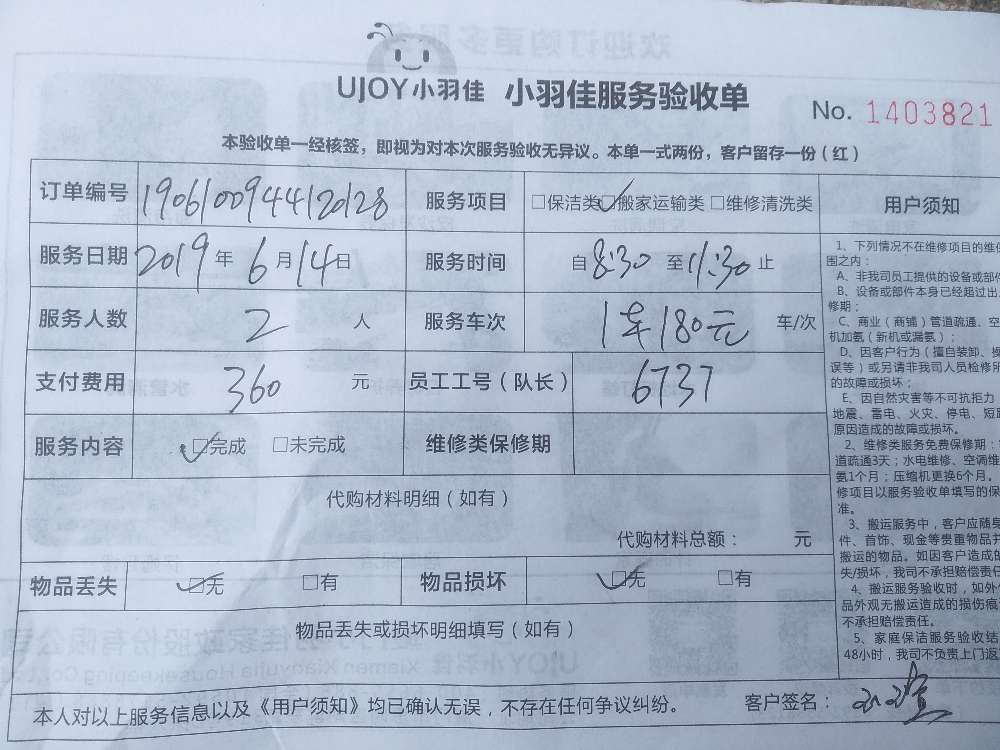 UJOY小羽佳 小羽佳服务验收单 No. 1403821
本验收单一经核签，即视为对本次服务验收无异议。本单一式两份，客户留存一份（红）
订单编号 1906100944120128 服务项目 □保洁类□搬家运输类 □维修清洗类
服务日期 2019年6月14日 服务时间 自8:30至11:30止
服务人数 2人 服务车次 1车180元 车/次
支付费用 360元 员工工号（队长） 6737
服务内容 □完成 □未完成 维修类保修期
代购材料明细（如有）
代购材料总额： 元
物品丢失 □无 □有 物品损坏 □无 □有
物品丢失或损坏明细填写（如有）
本人对以上服务信息以及《用户须知》均已确认无误，不存在任何争议纠纷。 客户签名：
用户须知
1、下列情况不在维修项目的维
围之内：
A、非我司员工提供的设备或部
B、设备或部件本身已经超过出
修期；
C、商业（商铺）管道疏通、空
机加氨（新机或漏氨）；
D、因客户行为（擅自装卸、
误等）或另请非我司人员检修所
的故障或损坏；
E、因自然灾害等不可抗拒力
地震、雷电、火灾、停电、短
原因造成的故障或损坏。
2、维修类服务免费保修期：
道疏通3天；水电维修、空调维
氨1个月；压缩机更换6个月。
修项目以服务验收单填写的保
准。
3、搬运服务中，客户应随身
件、首饰、现金等贵重物品并
搬运的物品。如因客户造成的
失/损坏，我司不承担赔偿责任
4、搬运服务验收时，如外
品外观无搬运造成的损伤痕
不承担赔偿责任。
5、家庭保洁服务验收结
48小时，我司不负责上门返